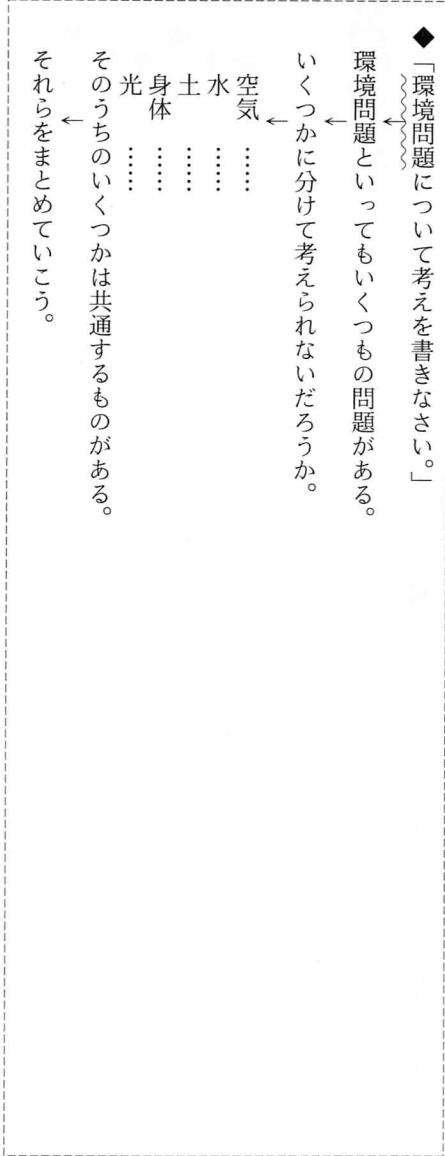 ◆「環境問題について考えを書きなさい。」
←
環境問題といってもいくつもの問題がある。
←
いくつかに分けて考えられないだろうか。
←
空気 ……
水 ……
土 ……
身体 ……
光 ……
そのうちのいくつかは共通するものがある。
←
それらをまとめていこう。